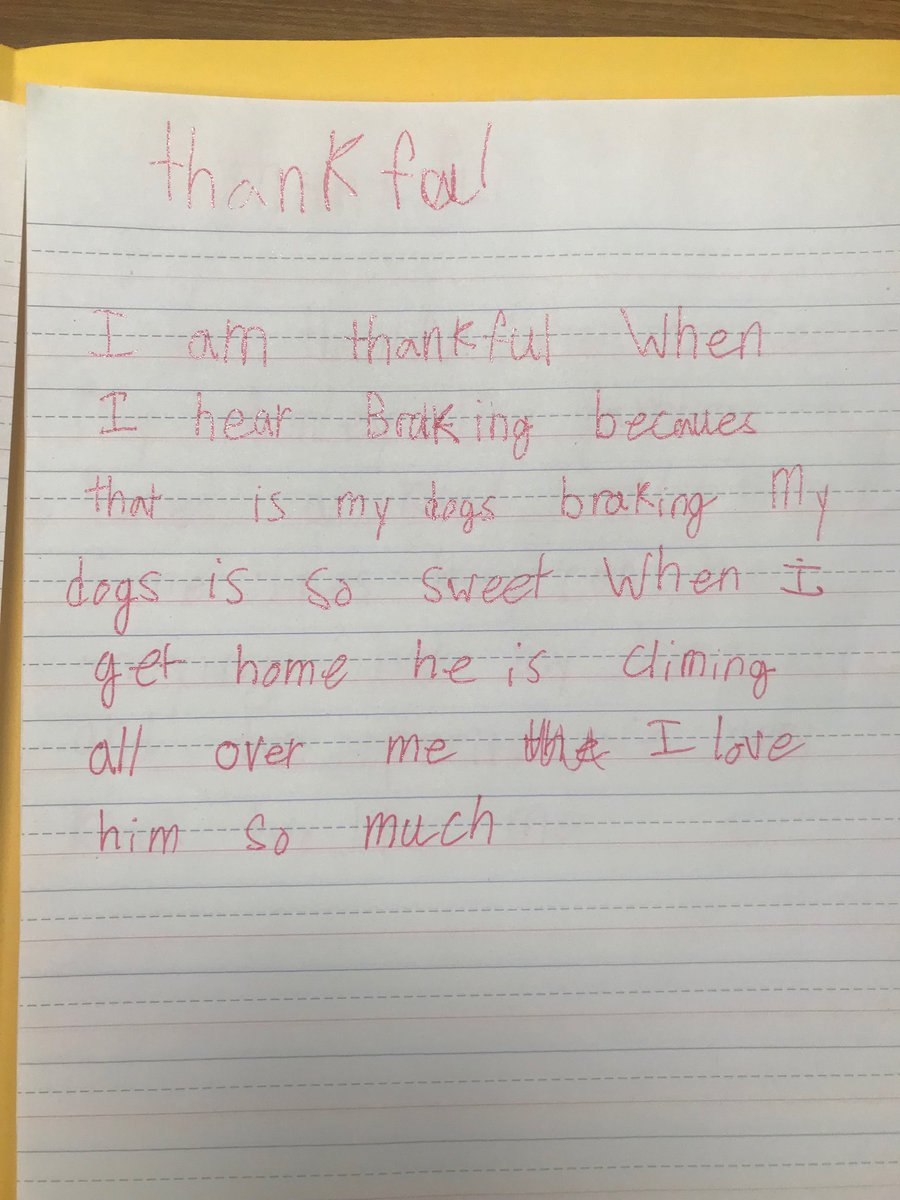 thankful
I am thankful When
I hear Braking becaues
that is my dogs braking My
dogs is so sweet When I
get home he is climing
all over me I love
him so much